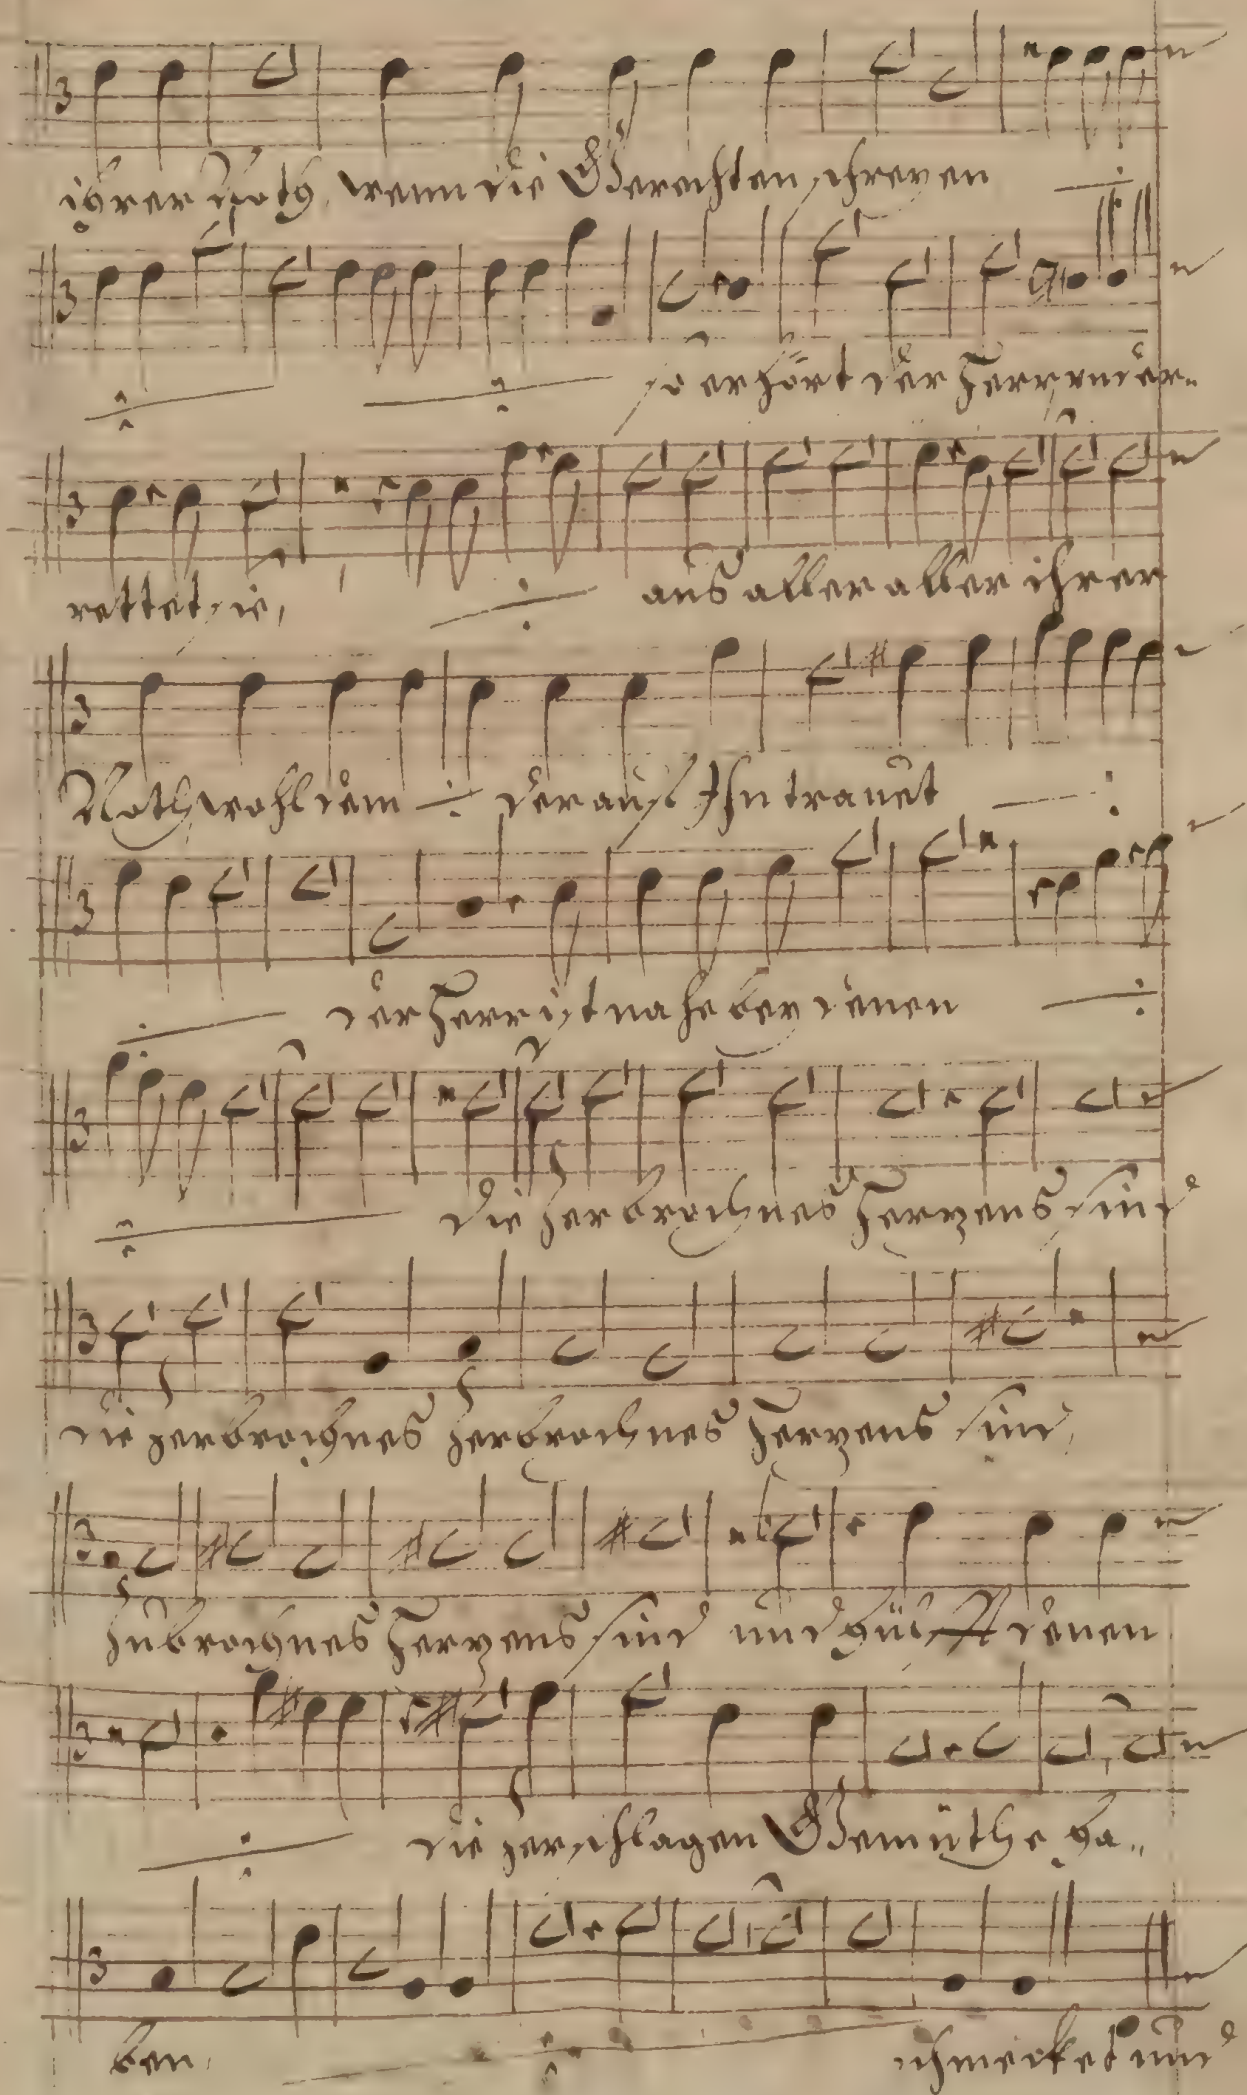 ihrer Noth, wenn die Gerechten schreyen
so erhört der Herr und er-
rettet sie, aus aller aller ihrer
Noth, wohl dem der auf Ihn trauet
der Herr ist nahe bey denen
die zerbrochnes Herzens sind
die zerbrochnes zerbrochnes Herzens sind,
zubrochnes Herzens sind und hilfft denen
die zerschlagen Gemüthe ha-
ben, schmecket und